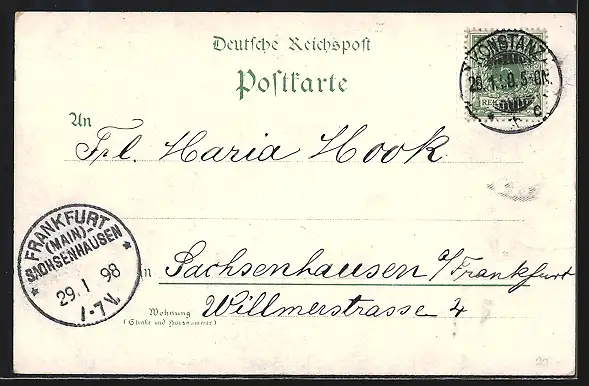 Deutsche Reichspost
Postkarte
KONSTANZ
An
Frl. Maria Hook
FRANKFURT
(MAIN)-
SACHSENHAUSEN
29.1 98
1-7V.
in Sachsenhausen a/Frankfurt
Wohnung
(Straße und Hausnummer)
Willmerstrasse 4